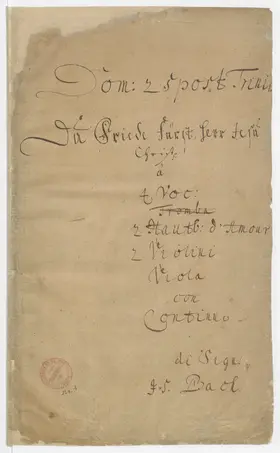 Dom: 25 post Trinit
Du Friede Fürst. Herr Jesu
Christ.
â
4 Voc:
Tromba
2 Hautb: d'Amour
2 Violini
Viola
con
Continuo
di Sign.
J. S. Bach